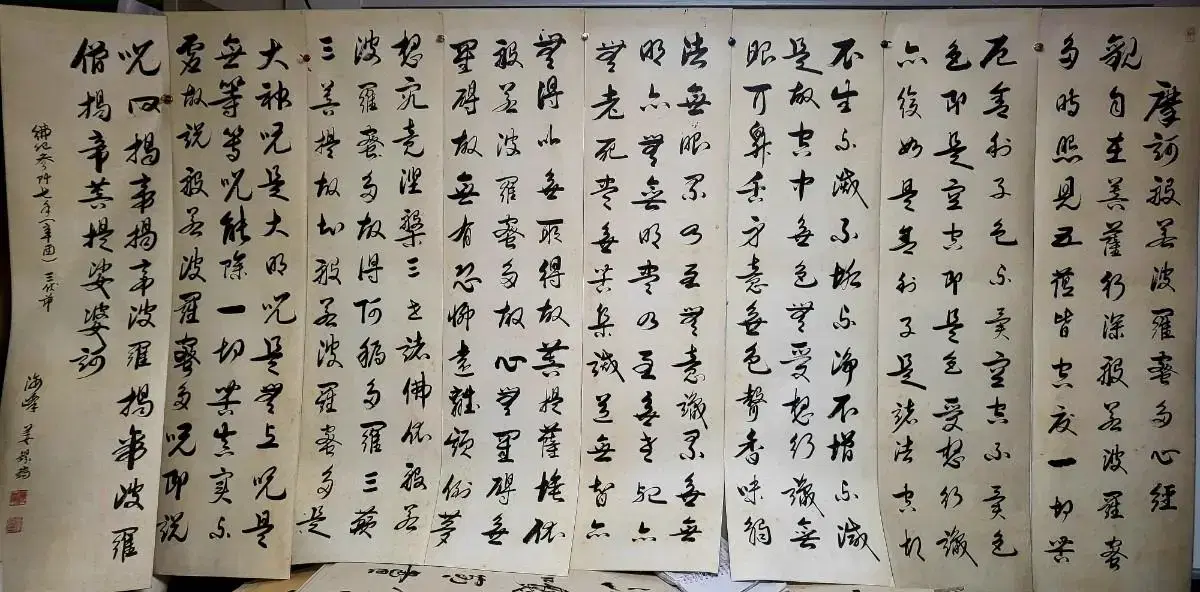 摩訶般若波羅蜜多心經
觀自在菩薩行深般若波羅蜜
多時照見五蘊皆空度一切苦
厄舍利子色不異空空不異色
色即是空空即是色受想行識
亦復如是舍利子是諸法空相
不生不滅不垢不淨不增不減
是故空中無色無受想行識無
眼耳鼻舌身意無色聲香味觸
法無眼界乃至無意識界無無
明亦無無明盡乃至無老死亦
無老死盡無苦集滅道無智亦
無得以無所得故菩提薩埵依
般若波羅蜜多故心無罣碍無
罣碍故無有恐怖遠離顛倒夢
想究竟涅槃三世諸佛依般若
波羅蜜多故得阿耨多羅三藐
三菩提故知般若波羅蜜多是
大神呪是大明呪是無上呪是
無等等呪能除一切苦真實不
虛故說般若波羅蜜多呪即說
呪曰揭帝揭帝波羅揭帝波羅
僧揭帝菩提娑婆訶
佛紀叁阡七年(辛酉)三伏節
海峰 姜